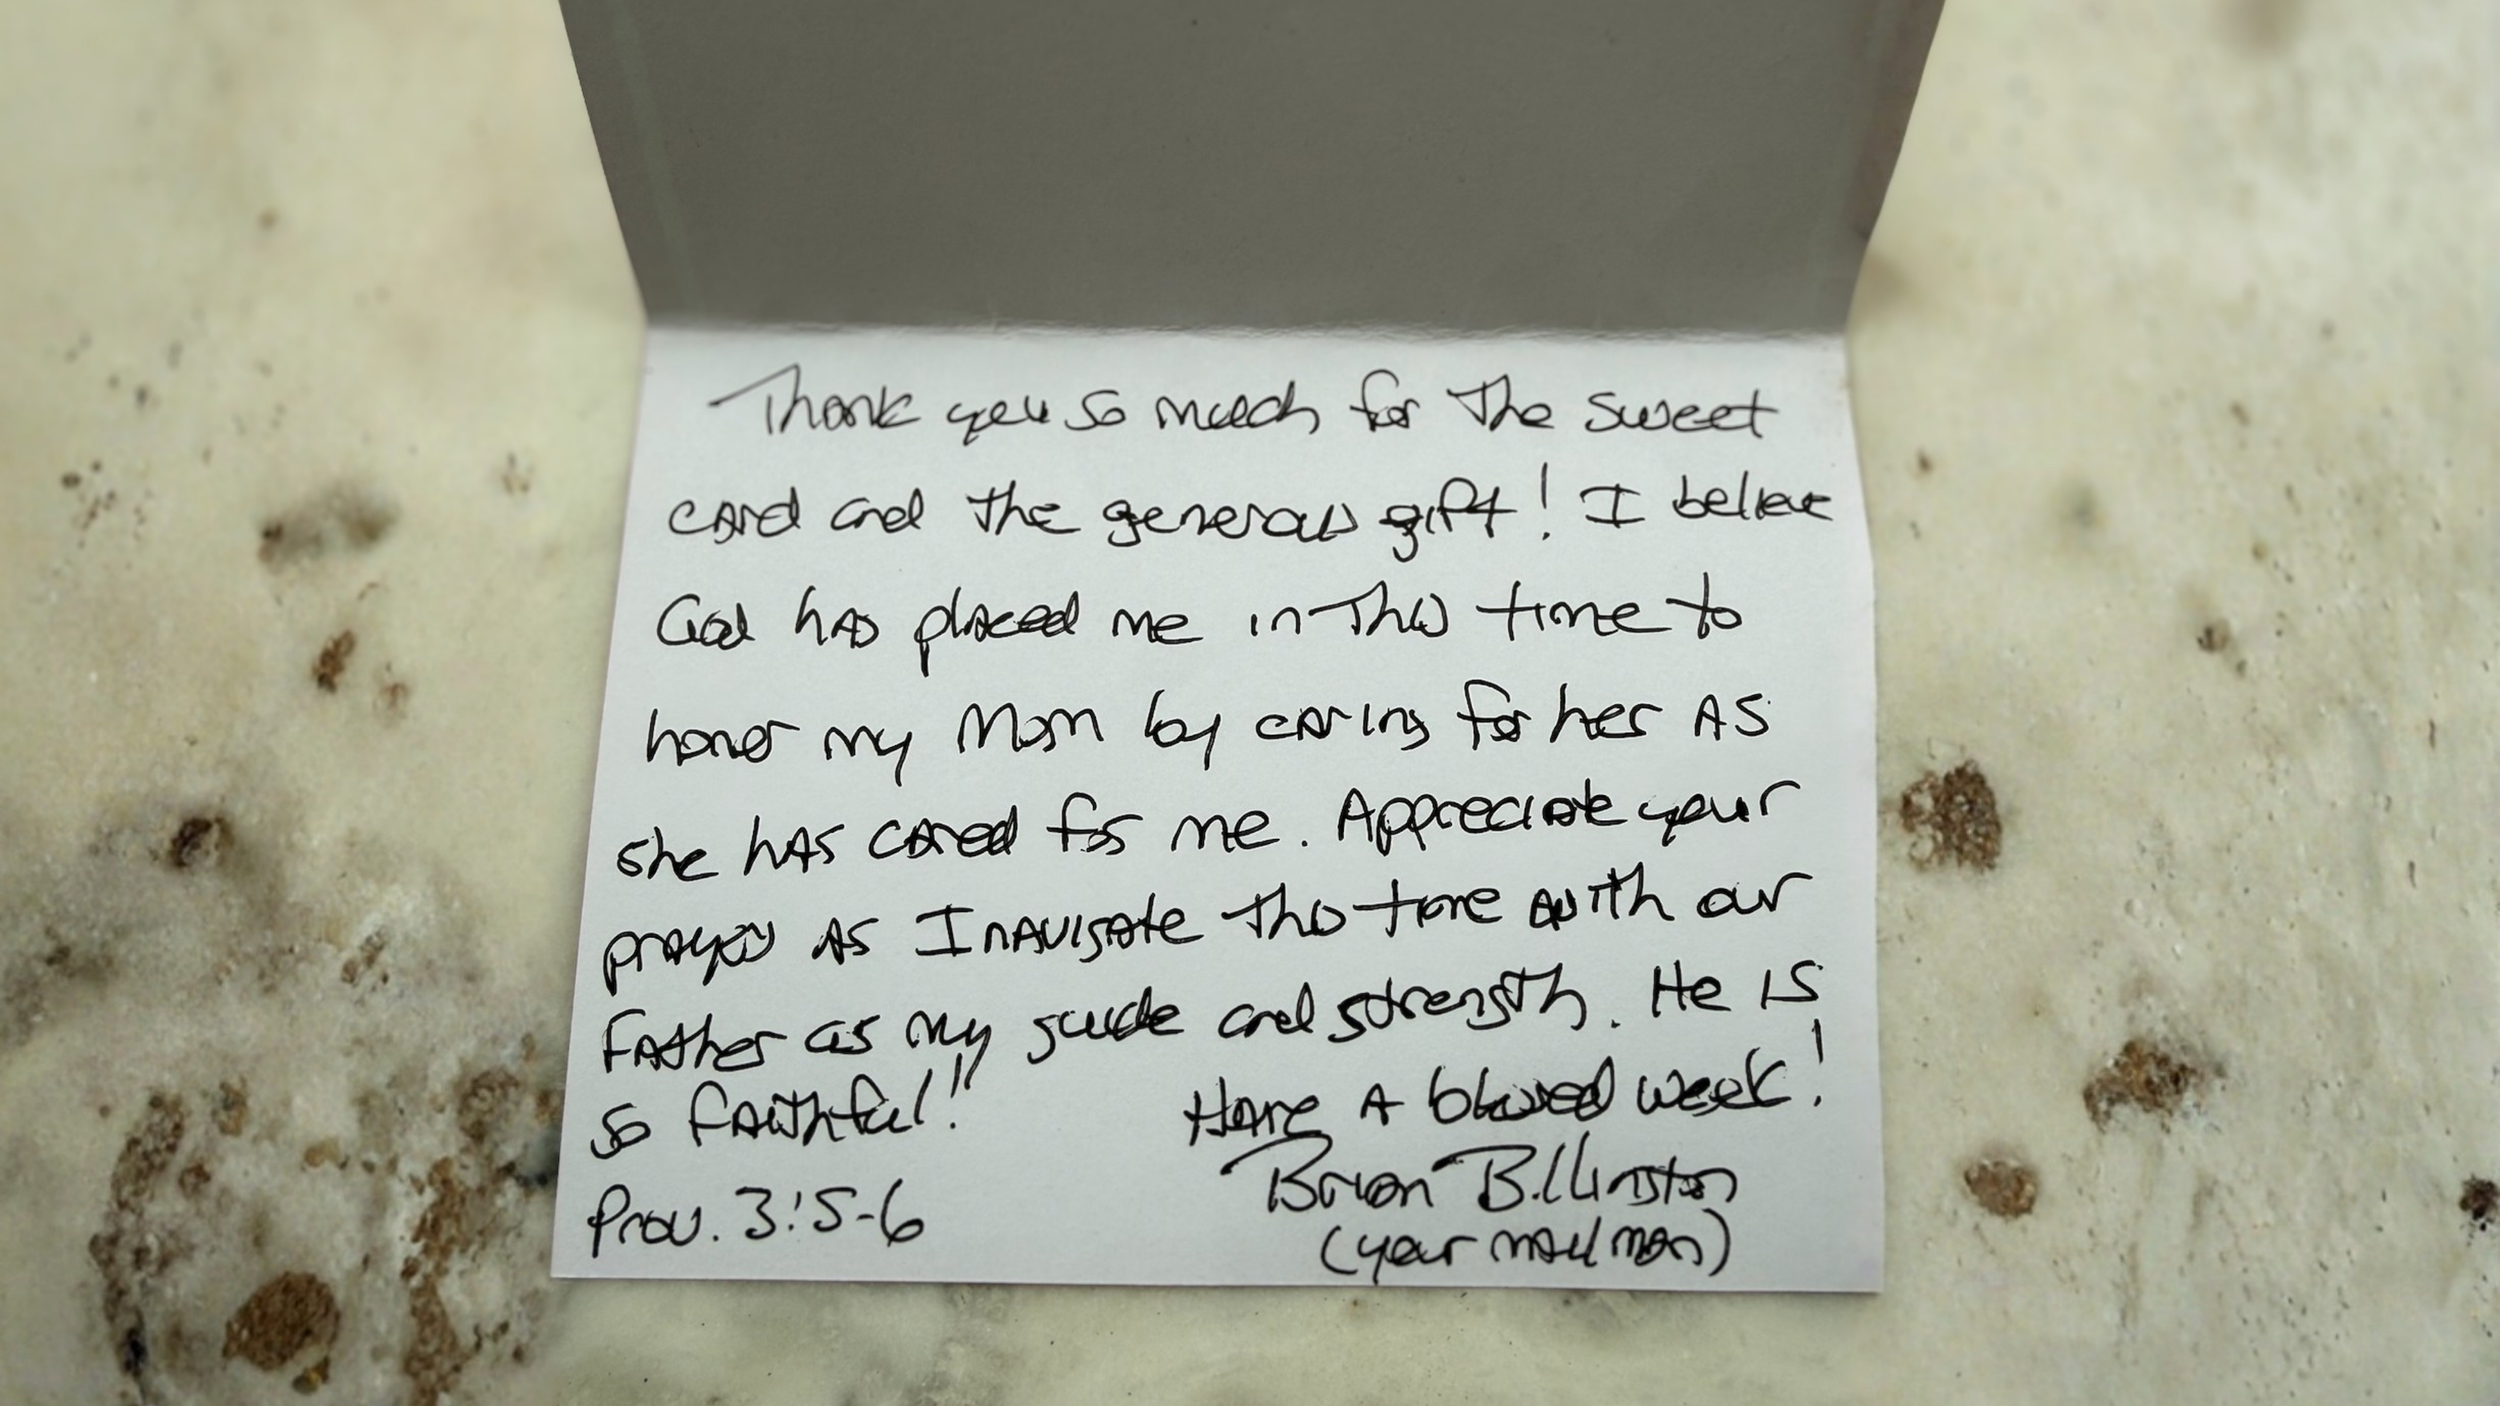 Thank you so much for the sweet
card and the generous gift! I believe
God has placed me in this time to
honor my Mom by caring for her AS
she has cared for me. Appreciate your
prayers AS I navigate this time with our
Father as my guide and strength. He is
so faithful!! Have A blessed week!
Brian Billington
Prov. 3:5-6
(your mailman)